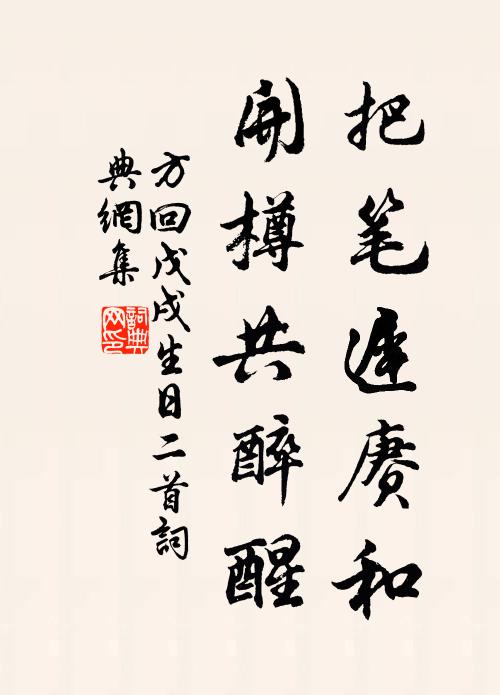 把笔遞赓和
開樽共醉醒
方回戊戌生日二首詞
典網集
詞典
网印